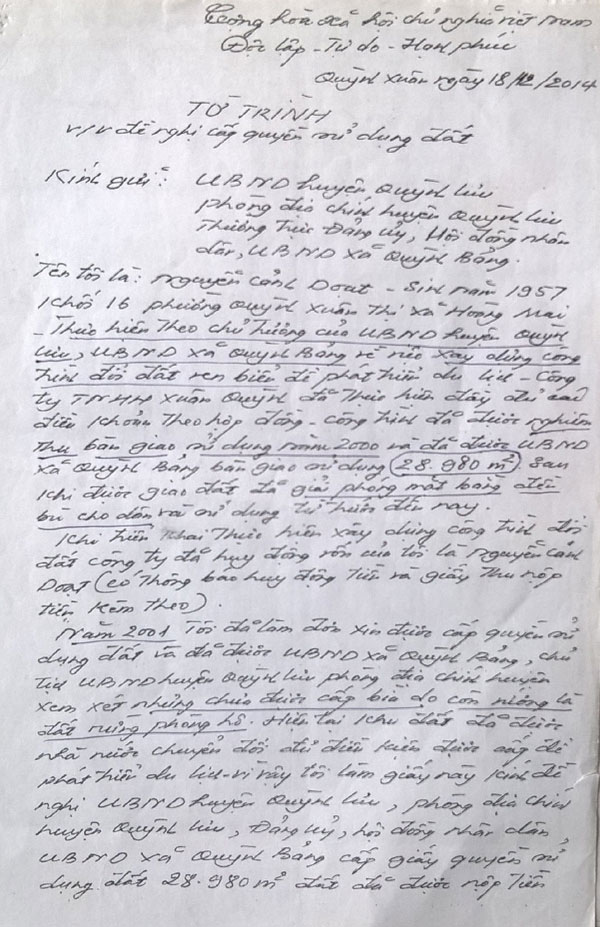 Cộng hòa xã hội chủ nghĩa việt Nam
Độc lập - Tự do - Hạnh phúc
Quỳnh Xuân ngày 18/12/2014
TỜ TRÌNH
v/v đề nghị cấp quyền sử dụng đất
Kính gửi: UBND huyện Quỳnh Lưu
phòng địa chính huyện Quỳnh Lưu
Thường trực Đảng ủy, Hội đồng nhân
dân, UBND xã Quỳnh Bảng.
Tên tôi là: Nguyễn Cảnh Doạt - Sinh năm 1957
Khối 16 phường Quỳnh Xuân Thị xã Hoàng Mai
- Thực hiện theo chủ trương của UBND huyện Quỳnh
Lưu, UBND xã Quỳnh Bảng về việc xây dựng công
trình đổi đất ven biển để phát triển du lịch - Công
ty TNHH Xuân Quỳnh đã thực hiện đầy đủ các
điều khoản theo hợp đồng - công trình đã được nghiệm
thu bàn giao sử dụng năm 2000 và đã được UBND
xã Quỳnh Bảng bàn giao sử dụng (28.980 m²). Sau
khi được giao đất đã giải phóng mặt bằng đền
bù cho dân và sử dụng từ đến nay.
Khi triển khai thực hiện xây dựng công trình đổi
đất công ty đã huy động vốn của tôi là Nguyễn Cảnh
Doạt (có thông báo huy động tiền và giấy thu nộp
tiền kèm theo).
Năm 2001 Tôi đã làm đơn xin được cấp quyền sử
dụng đất và đã được UBND xã Quỳnh Bảng, chủ
tịch UBND huyện Quỳnh Lưu phòng địa chính huyện
xem xét nhưng chưa được cấp bìa do còn vướng là
đất rừng phòng hộ. Hiện tại khu đất đã được
nhà nước chuyển đổi đủ điều kiện được cấp để
phát triển du lịch - vì vậy tôi làm giấy này kính đề
nghị UBND huyện Quỳnh Lưu, phòng địa chính
huyện Quỳnh Lưu, Đảng ủy, hội đồng nhân dân,
UBND xã Quỳnh Bảng cấp giấy quyền sử
dụng đất 28.980 m² đất đã được nộp tiền